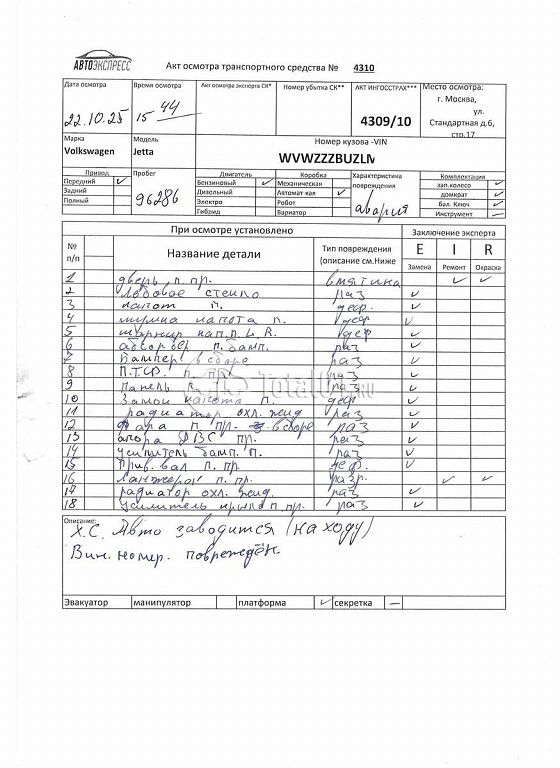 АВТОЭКСПРЕСС
Акт осмотра транспортного средства № 4310
Дата осмотра Время осмотра Акт осмотра эксперта СК* Номер убытка СК** АКТ ИНГОССТРАХ*** Место осмотра:
22.10.25 15 44 4309/10 г. Москва, ул. Стандартная д.6, стр.17
Марка Модель Номер кузова -VIN
Volkswagen Jetta WVWZZZBUZLM
Привод Пробег Двигатель Коробка Характеристика повреждения Комплектация
Передний 96286 Бензиновый Механическая авария зап.колесо
Задний Дизельный Автомат-кая домкрат
Полный Электро Робот бал. Ключ
Гибрид Вариатор Инструмент
При осмотре установлено Заключение эксперта
№ п/п Название детали Тип повреждения (описание см.Ниже E I R
Замена Ремонт Окраска
1 дверь п. пр. вмятина
2 Лобовое стекло раз
3 капот п. деф.
4 шумка капота п. деф
5 шарнир кап. п. L. R. деф
6 абсорбер п. бамп. раз
7 Бампер в сборе раз
8 П.Т.Ф. п. пр. раз
9 панель п. раз
10 Замок капота п. деф
11 радиатор охл. жид раз
12 Фара п. пр. в сборе раз
13 опора ДВС пр. раз
14 усилитель бамп. п. раз
15 Прив. вал п. пр. деф.
16 Лонжерон п. пр. разр.
17 радиатор охл. жид. раз
18 усилитель крыла п. пр. раз
TotalCar.ru
Описание:
Х.С. Авто заводится (на ходу)
Вин. номер. повреждён.
Эвакуатор манипулятор платформа секретка